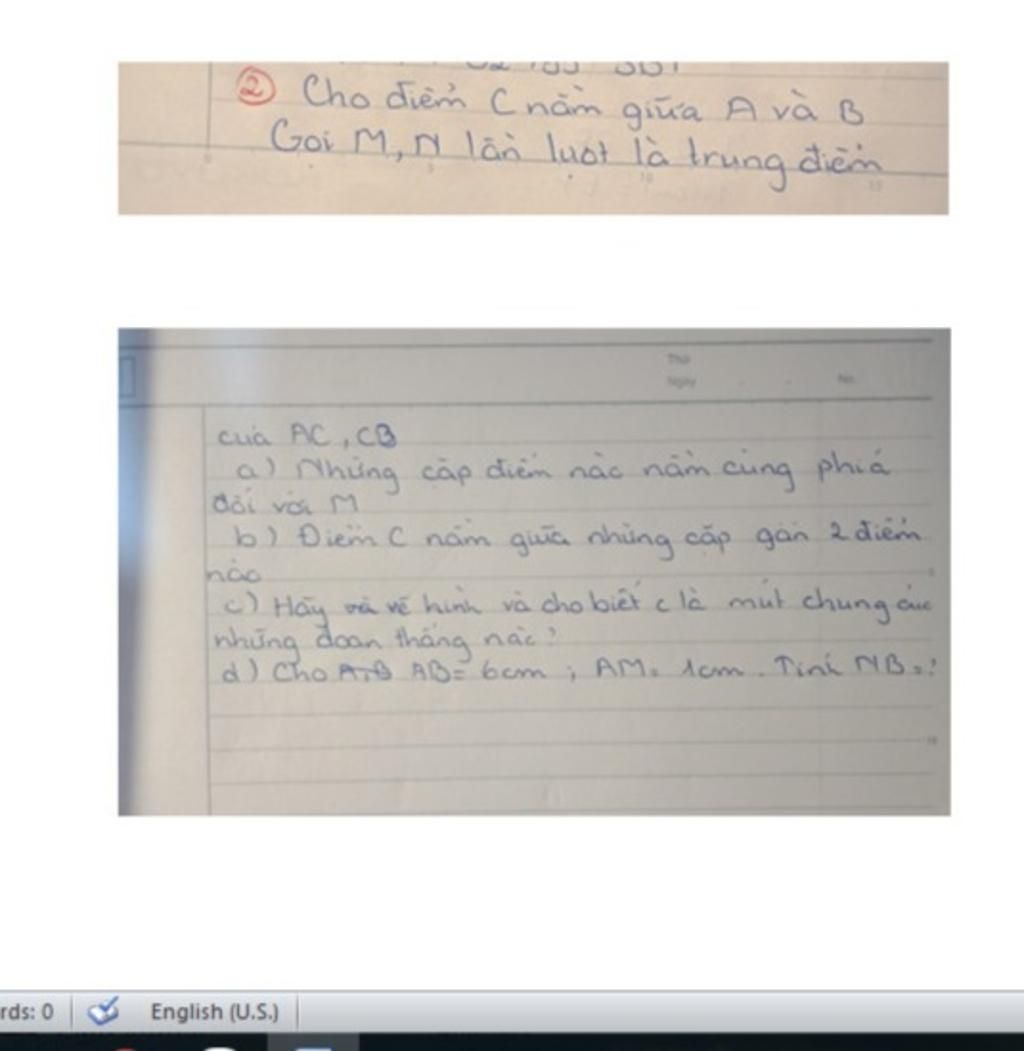 ② Cho điểm C nằm giữa A và B
Gọi M, N lần lượt là trung điểm
Thứ
Ngày No.
của AC, CB
a) Những cặp điểm nào nằm cùng phía
đối với M
b) Điểm C nằm giữa những cặp gần 2 điểm
nào
c) Hãy vẽ hình và cho biết C là mút chung của
những đoạn thẳng nào?
d) Cho AB AB = 6cm ; AM = 1cm. Tính NB = ?
rds: 0 English (U.S.)